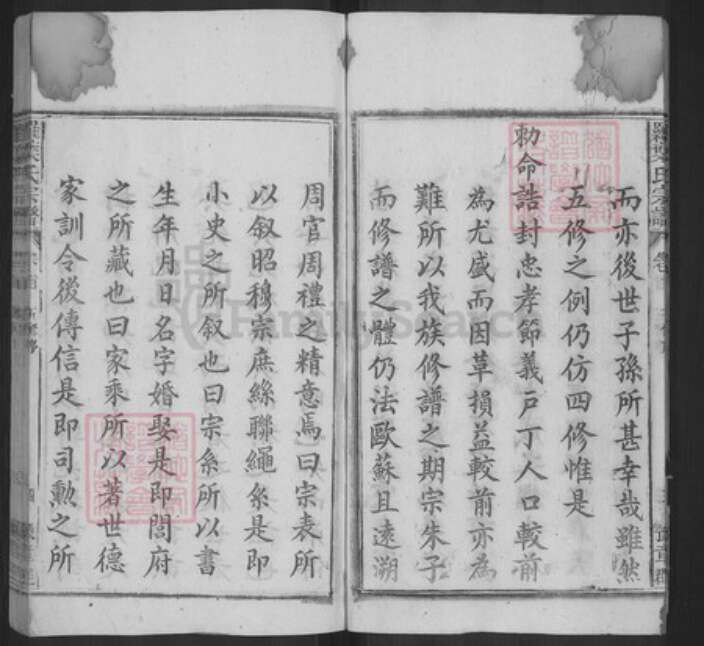 而亦後世子孫所甚幸哉雖然
五修之例仍仿四修惟是
勅命誥封忠孝節義戶丁人口較前
為尤盛而因革損益較前亦為
難所以我族修譜之期宗朱子
而修譜之體仍法歐蘇且遠溯
周官周禮之精意焉曰宗表所
以叙昭穆宗庶絲聯繩糸是即
小史之所叙也曰宗系所以書
生年月日名字婚娶是即閭府
之所藏也曰家乘所以著世德
家訓令後傳信是即司勳之所
FamilySearch